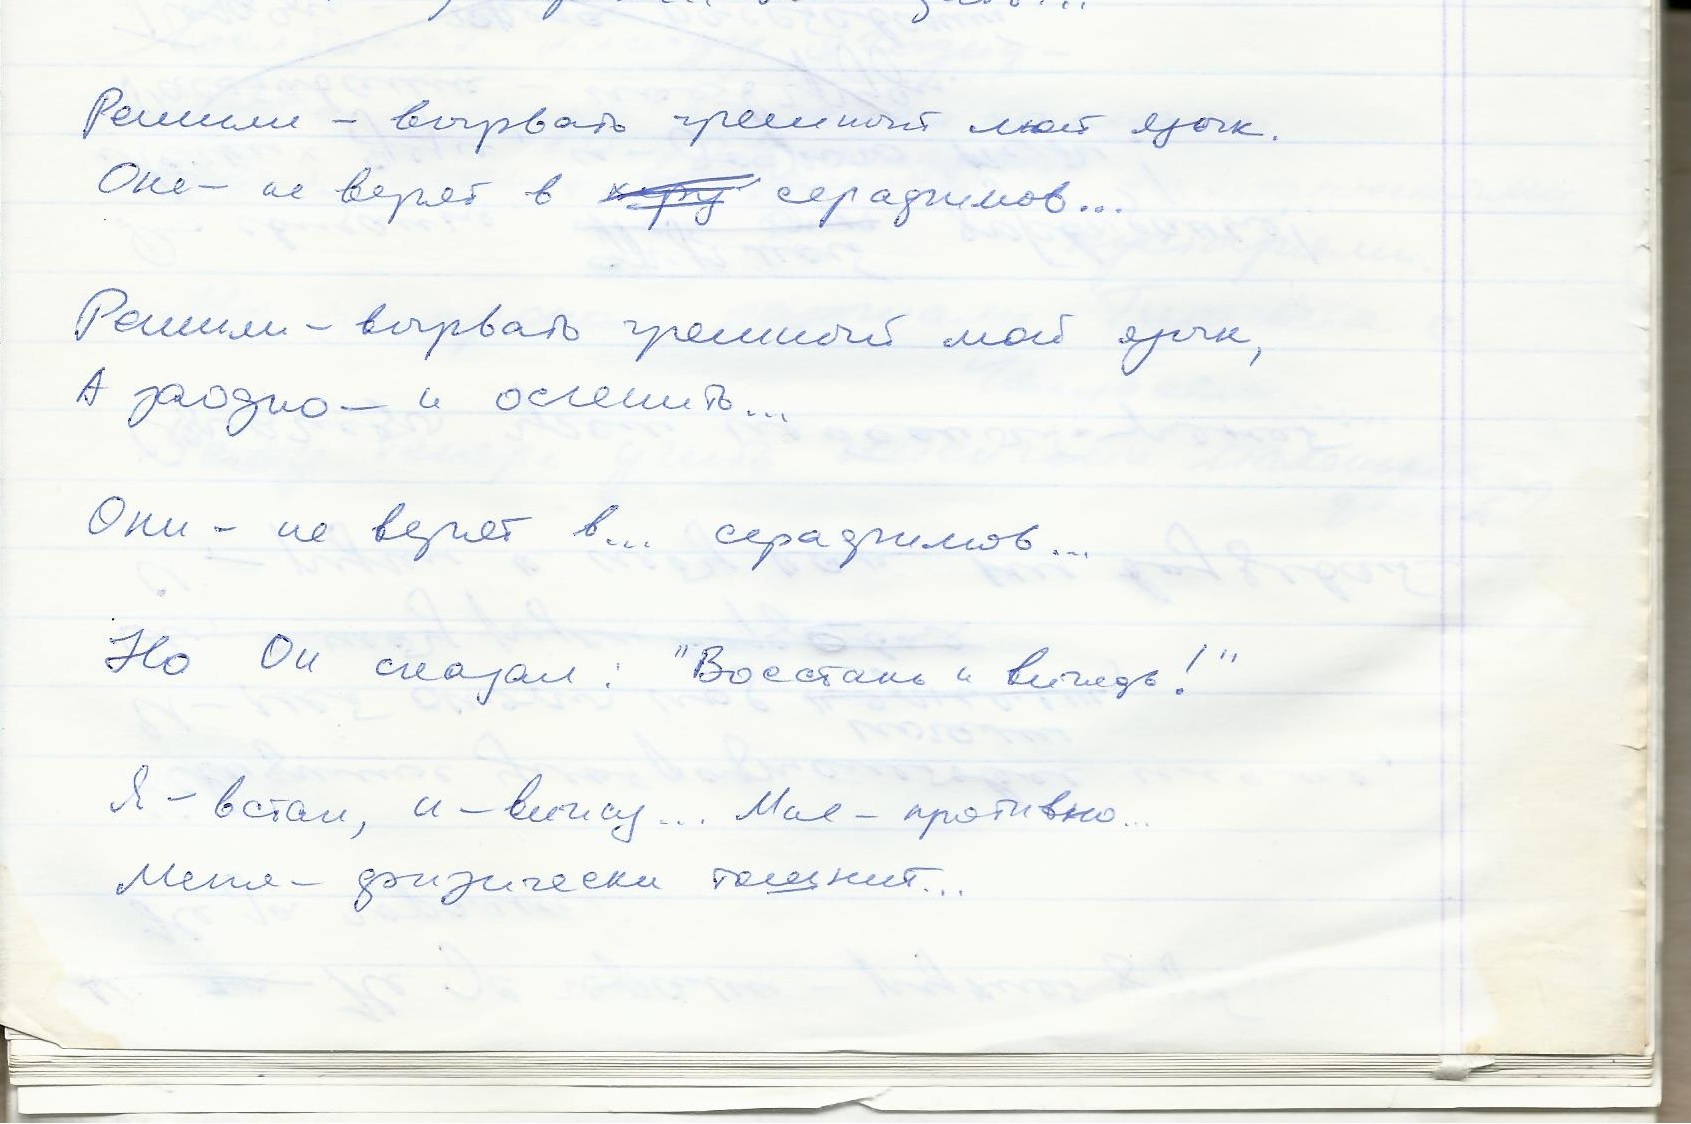 Решили – вырвать грешный мой язык.
Они – не верят в серафимов...
Решили – вырвать грешный мой язык,
А заодно – и ослепить...
Они – не верят в... серафимов...
Но Он сказал: "Восстань и виждь!"
Я – встал, и – вижу... Мне – противно...
Меня – физически тошнит...